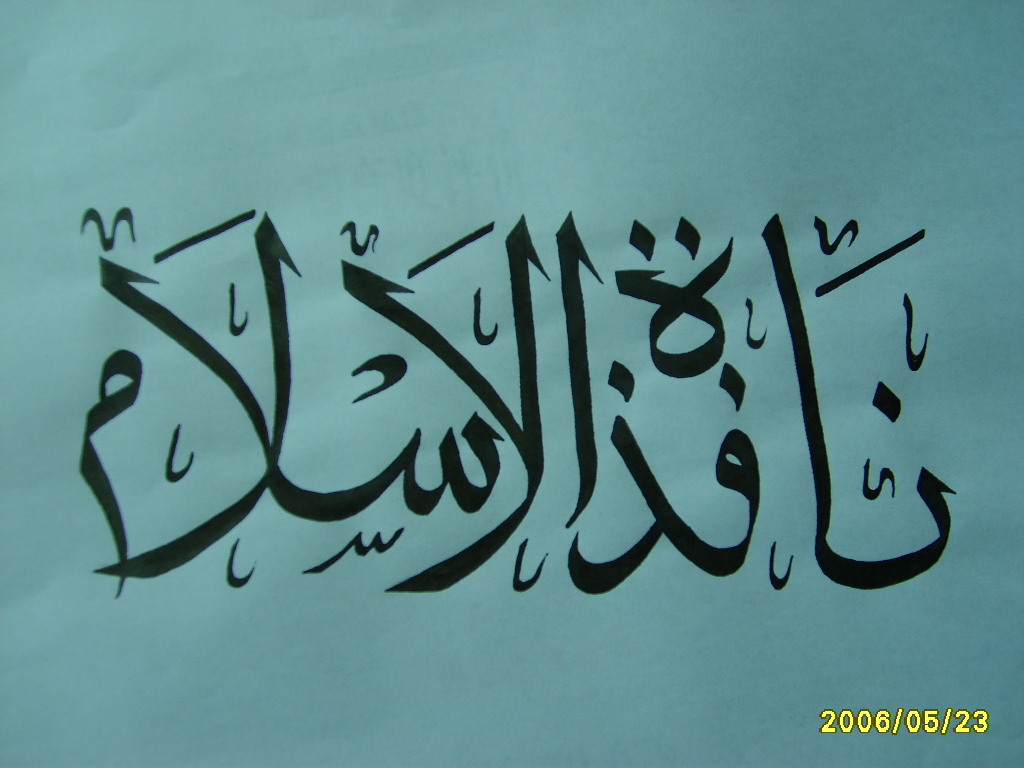 نافذة الإسلام
2006/05/23